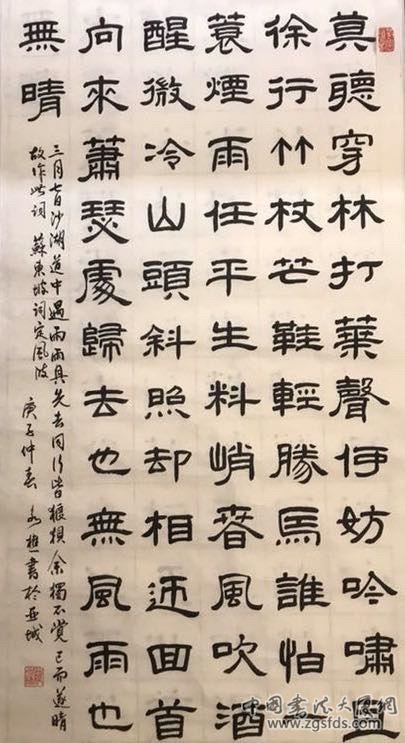 莫聽穿林打葉聲何妨吟嘯且
徐行竹杖芒鞵輕勝馬誰怕一
蓑煙雨任平生料峭春風吹酒
醒微冷山頭斜照却相迎回首
向來蕭瑟處歸去也無風雨也
無晴
三月七日沙湖道中遇雨雨具先去同行皆狼狽余獨不覺已而遂晴
故作此詞 蘇東坡詞定風波 庚子仲春 樵書於亚城
中国书法大赛网
www.zgsfds.com